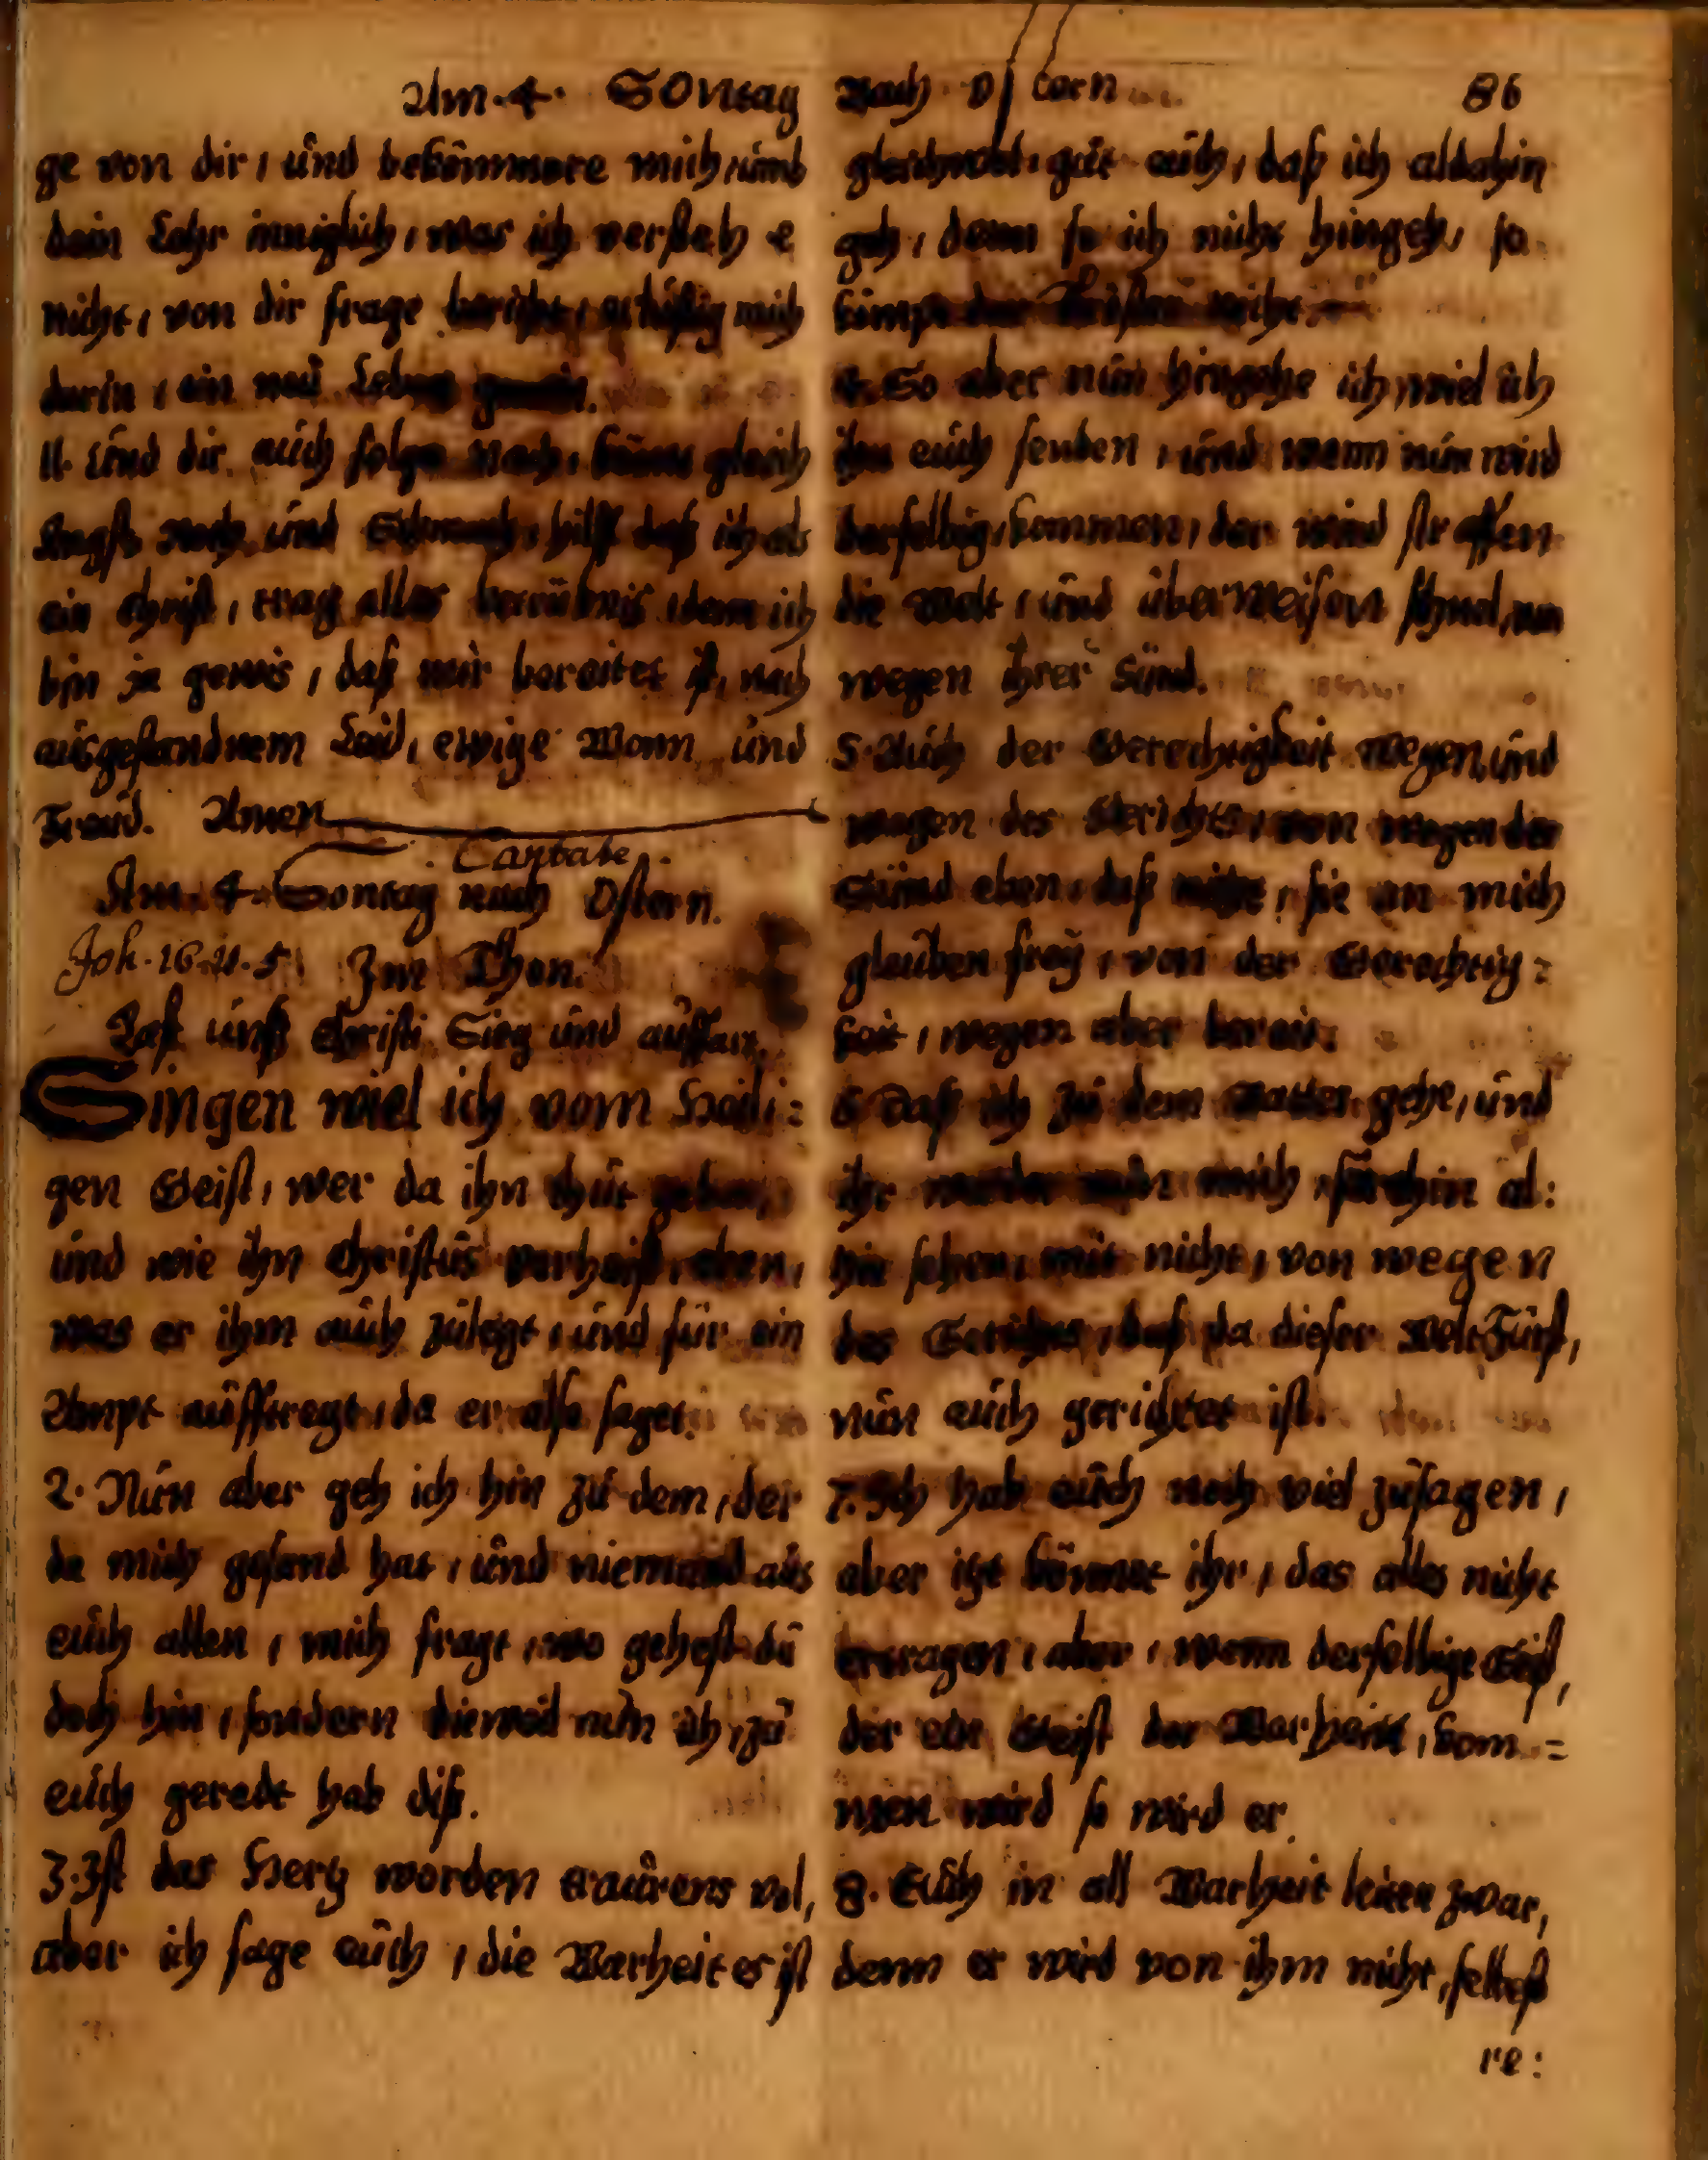 Am. 4. Sontag
ge von dir, und bekümmere mich, umb
dein Lehr inniglich, was ich versteh e
nicht, von dir frage bericht, mich
darin, ein neu Leben
11. Und dir auch folge nach, gleich
Angst und Schmach, hilff daß ich als
ein Christ, trag alles betrübnis, denn ich
bin ja gewis, daß mir bereitet ist, nach
ausgestandnem Leid, ewige Wonn und
Freud. Amen
Cantate.
Am. 4. Sontag nach Ostern.
Joh. 16. v. 5 Im Thon.
Last unß Christi Sieg und auffart.
Singen wiel ich vom Heili=
gen Geist, wer da ihn thut geben,
und wie ihn Christus verheist, eben,
was er ihm auch zulegt, und für ein
Ampt aufftregt, da er also saget.
2. Nun aber geh ich hin zu dem, der
da mich gesand hat, und niemand aus
euch allen, mich fragt, wo gehest du
doch hin, sondern dieweil nun ich, zu
euch geredt hab diß.
3. Ist das Hertz worden traurens vol,
aber ich sage euch, die Warheit es ist
Nach Ostern 86
gleichwol, gut euch, daß ich aldahin
geh, denn so ich nicht hingeh, so
kömpt der Tröster nicht
4. So aber nun hingehe ich, wiel ich
ihn euch senden, und wenn nun wird
derselbig, kommen, der wird straffen
die Welt, und überweisen schnel, von
wegen ihrer Sünd.
5. Auch der Gerechtigkeit wegen, und
wegen des Gerichts, von wegen der
Sünd eben, daß nicht, sie an mich
gleuben frey, von der Gerechtig=
keit, wegen aber bereit.
6. Daß ich zu dem Vatter gehe, und
ihr mich, forthin al:
hie sehen, mit nicht, von wegen
des Gerichts, daß da dieser Welt Fürst,
nun auch gerichtet ist.
7. Ich hab euch noch viel zusagen,
aber itzt könnet ihr, das alles nicht
ertragen, aber, wenn derselbige Geist,
der ein Geist der Warheit, kom=
men wird so wird er.
8. Euch in all Warheit leiten zwar,
denn er wird von ihm nicht, selbest
re: